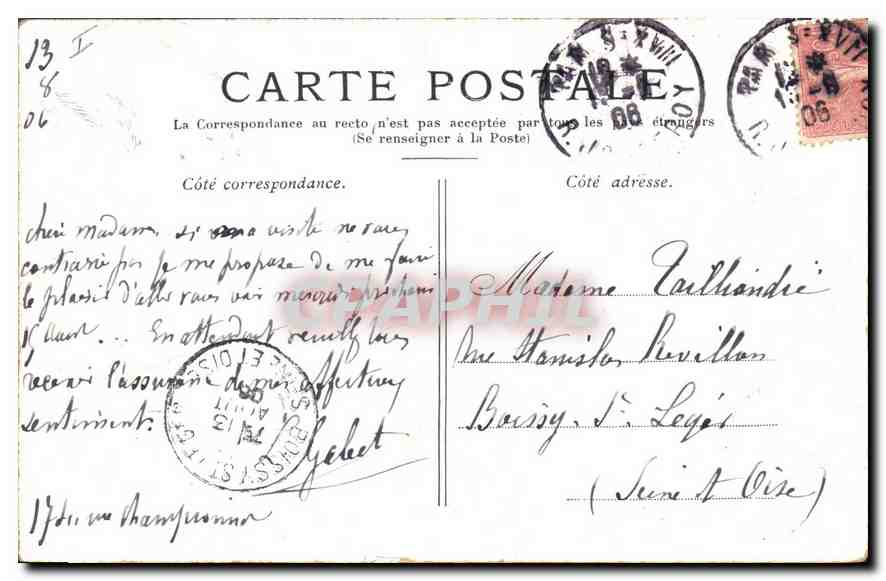 13 I
8
06
CARTE POSTALE
La Correspondance au recto n'est pas acceptée par tous les pays étrangers
(Se renseigner à la Poste)
Côté correspondance.
chère madame si ma visite ne vous
contrarie pas je me propose de me faire
le plaisir d'aller vous voir mercredi prochain
15 Aout ... En attendant veuillez bien
recevoir l'assurance de mes affectueux
sentiments.
Gebet
rue Championnet
Côté adresse.
Madame Tailliandié
rue Stanislas Revillon
Boissy St Leger
(Seine et Oise)
PARIS XVIII
06
PARIS XVIII
06
BOISSY ST LEGER
SEINE ET OISE
13
AOUT
06
GRAPHIL